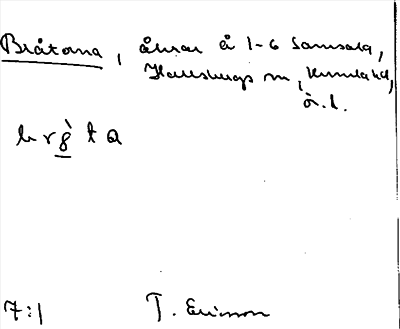 Bråtorna, åkrar å 1-6 Samsala,
Hallsbergs sn, Kumla hd,
ö.l.
br g̀ t a
7:1 T. Ericsson